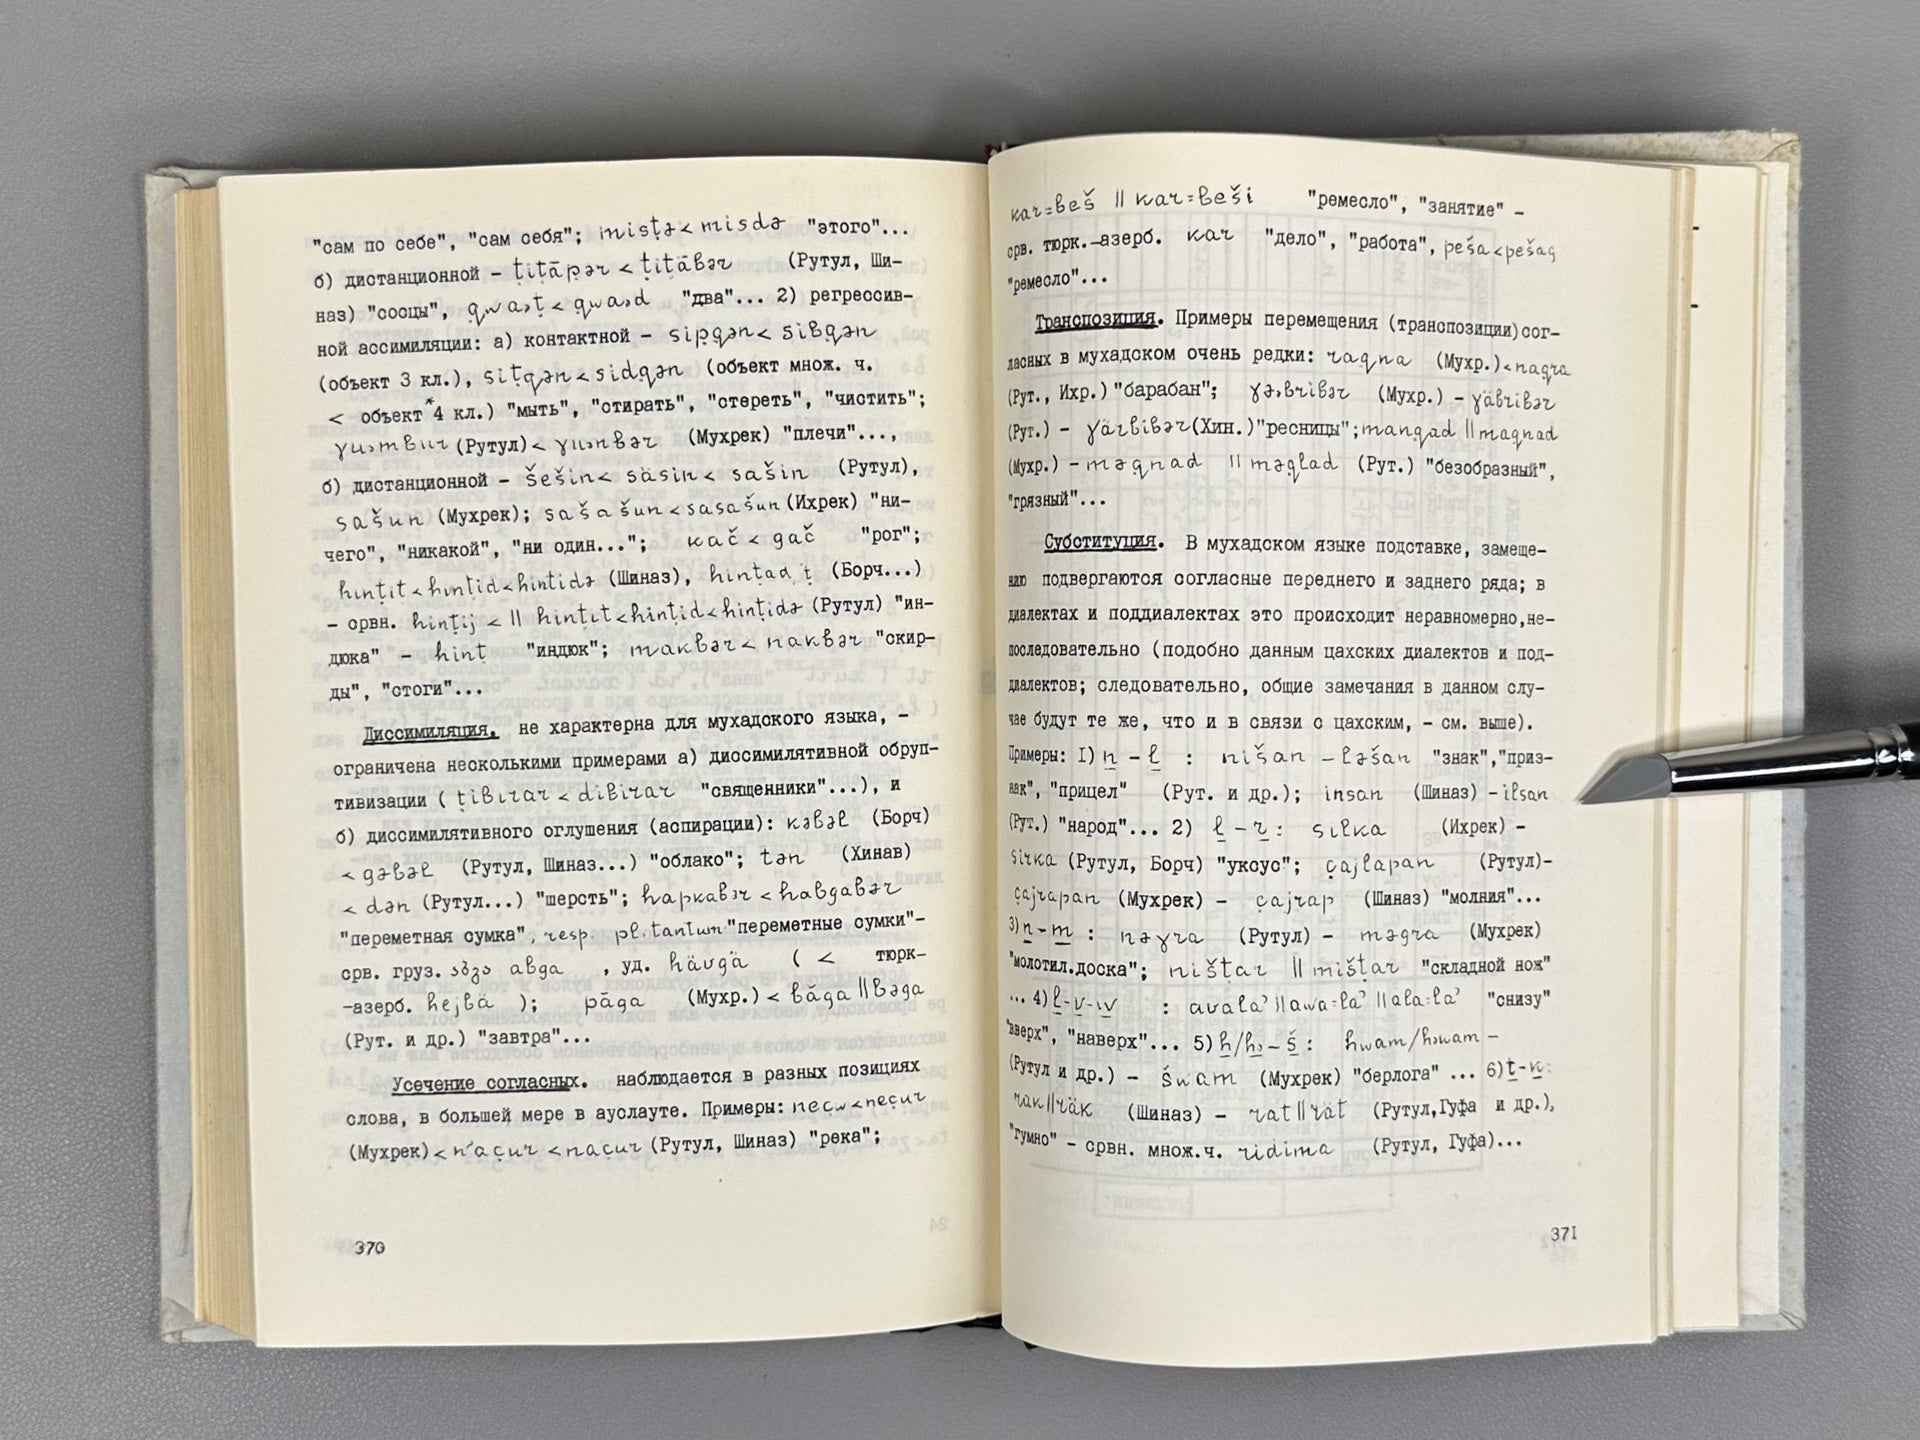 "сам по себе", "сам себя"; misṭə < misdə "этого"...
б) дистанционной – ṭiṭāpər < ṭiṭābər (Рутул, Ши-
наз) "сосцы", "два"... 2) регрессив-
ной ассимиляции: а) контактной – sipqən < sibqən
(объект 3 кл.), siṭqən < sidqən (объект множ. ч.
< объект *4 кл.) "мыть", "стирать", "стереть", "чистить";
(Рутул) < (Мухрек) "плечи"...,
б) дистанционной – šešin < säsin < sašin (Рутул),
sašun (Мухрек); sašašun < sasašun (Ихрек) "ни-
чего", "никакой", "ни один..."; kač < gač "рог";
hınṭıt < hınṭid < hintidə (Шиназ), (Борч...)
– срвн. hinṭij < || hinṭıt < hinṭid < hinṭidə (Рутул) "ин-
дюка" – hinṭ "индюк"; makbər < nakbər "скир-
ды", "стоги"...
Диссимиляция. не характерна для мухадского языка, –
ограничена несколькими примерами а) диссимилятивной обруп-
тивизации ( ṭibırar < dibirar "священники"...), и
б) диссимилятивного оглушения (аспирации): kəbəl (Борч)
< gəbəl (Рутул, Шиназ...) "облако"; tən (Хинав)
< dən (Рутул...) "шерсть"; hapkabər < habgabər
"переметная сумка", resp. pl. tantum "переметные сумки"–
срв. груз. აბგა abga , уд. hävgä ( < тюрк–
–азерб. hejbä ); pāga (Мухр.) < bāga || bəga
(Рут. и др.) "завтра"...
Усечение согласных. наблюдается в разных позициях
слова, в большей мере в ауслауте. Примеры: neçw < neçur
(Мухрек) < n'açur < naçur (Рутул, Шиназ) "река";
370
kar=beš || kar=beši "ремесло", "занятие" –
срв. тюрк.–азерб. kar "дело", "работа", peša < pešag
"ремесло"...
Транспозиция. Примеры перемещения (транспозиции) сог-
ласных в мухадском очень редки: raqna (Мухр.) < naqra
(Рут., Ихр.) "барабан"; (Мухр.) – γäbribər
(Рут.) – γärbibər (Хин.) "ресницы"; manqad || maqnad
(Мухр.) – məqnad || məqlad (Рут.) "безобразный",
"грязный"...
Субституция. В мухадском языке подставке, замеще-
нию подвергаются согласные переднего и заднего ряда; в
диалектах и поддиалектах это происходит неравномерно, не-
последовательно (подобно данным цахских диалектов и под-
диалектов; следовательно, общие замечания в данном слу-
чае будут те же, что и в связи с цахским, – см. выше).
Примеры: I) n – l : nišan – ləšan "знак", "приз-
нак", "прицел" (Рут. и др.); insan (Шиназ) – ilsan
(Рут.) "народ"... 2) l – r : sılka (Ихрек) –
sirka (Рутул, Борч) "уксус"; çajlapan (Рутул)–
çajrapan (Мухрек) – çajrap (Шиназ) "молния"...
3) n – m : nəγra (Рутул) – məgra (Мухрек)
"молотил.доска"; ništar || mištar "складной нож"
... 4) l-v-w : avala' || awa=la' || ala=la' "снизу"
вверх", "наверх"... 5) h/hə – š : hwam/həwam –
(Рутул и др.) – šwam (Мухрек) "берлога" ... 6) t-k:
rak || räk (Шиназ) – rat || rät (Рутул, Гуфа и др.),
"гумно" – срвн. множ.ч. ridima (Рутул, Гуфа)...
37I